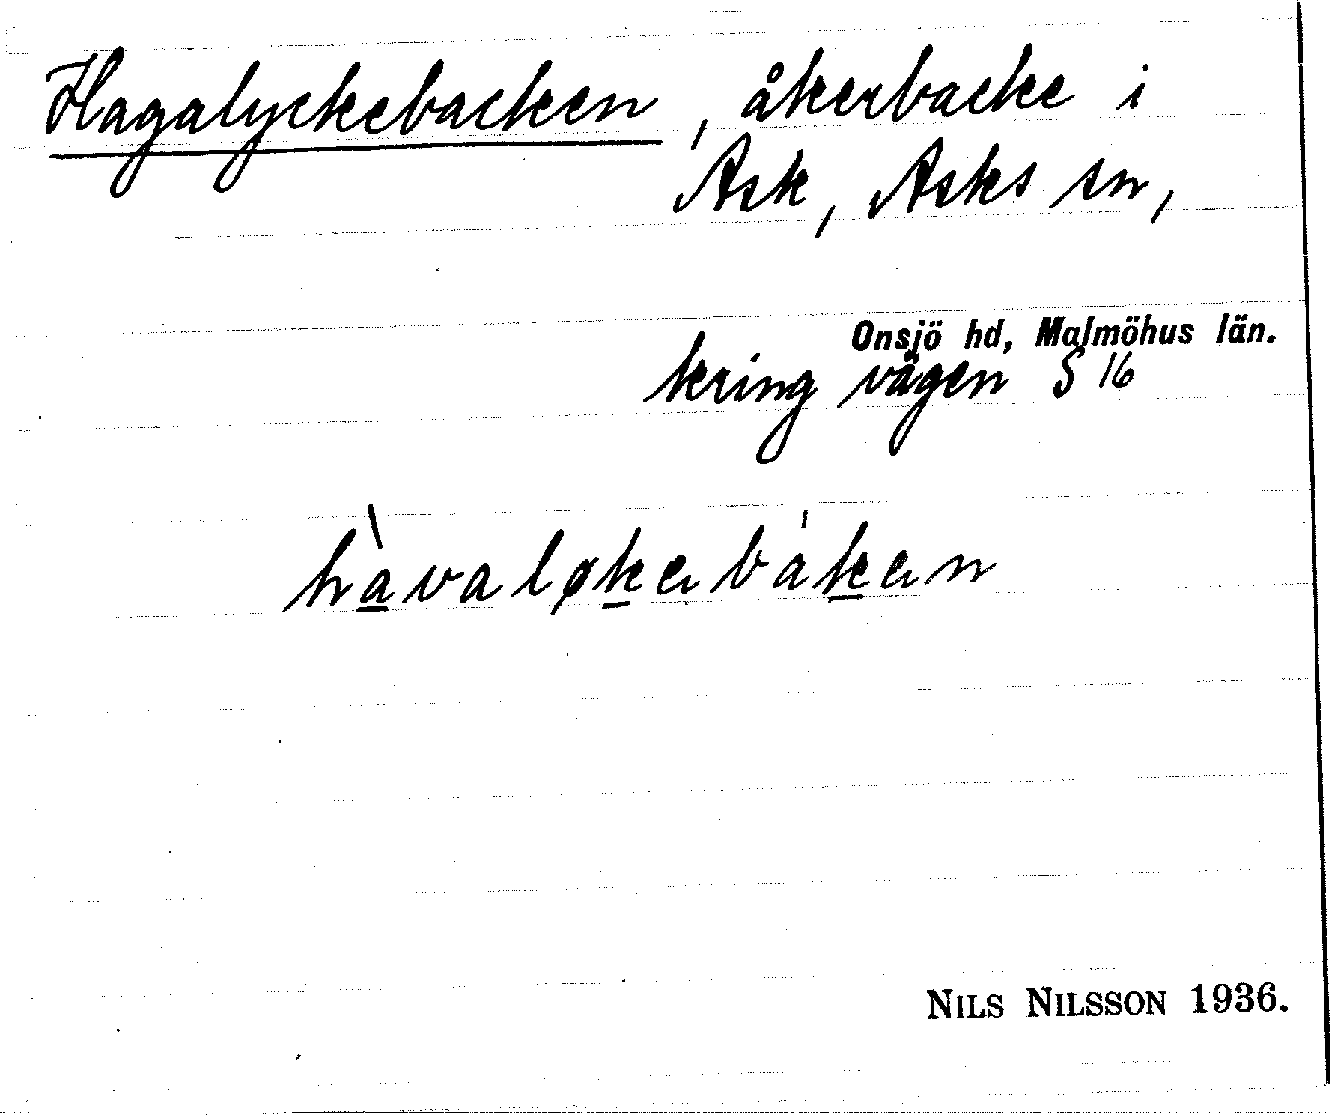 Hagalyckebacken, åkerbacke i
Ask, Asks sn,
Onsjö hd, Malmöhus län.
kring vägen S 16
hàvaløkabákan
NILS NILSSON 1936.